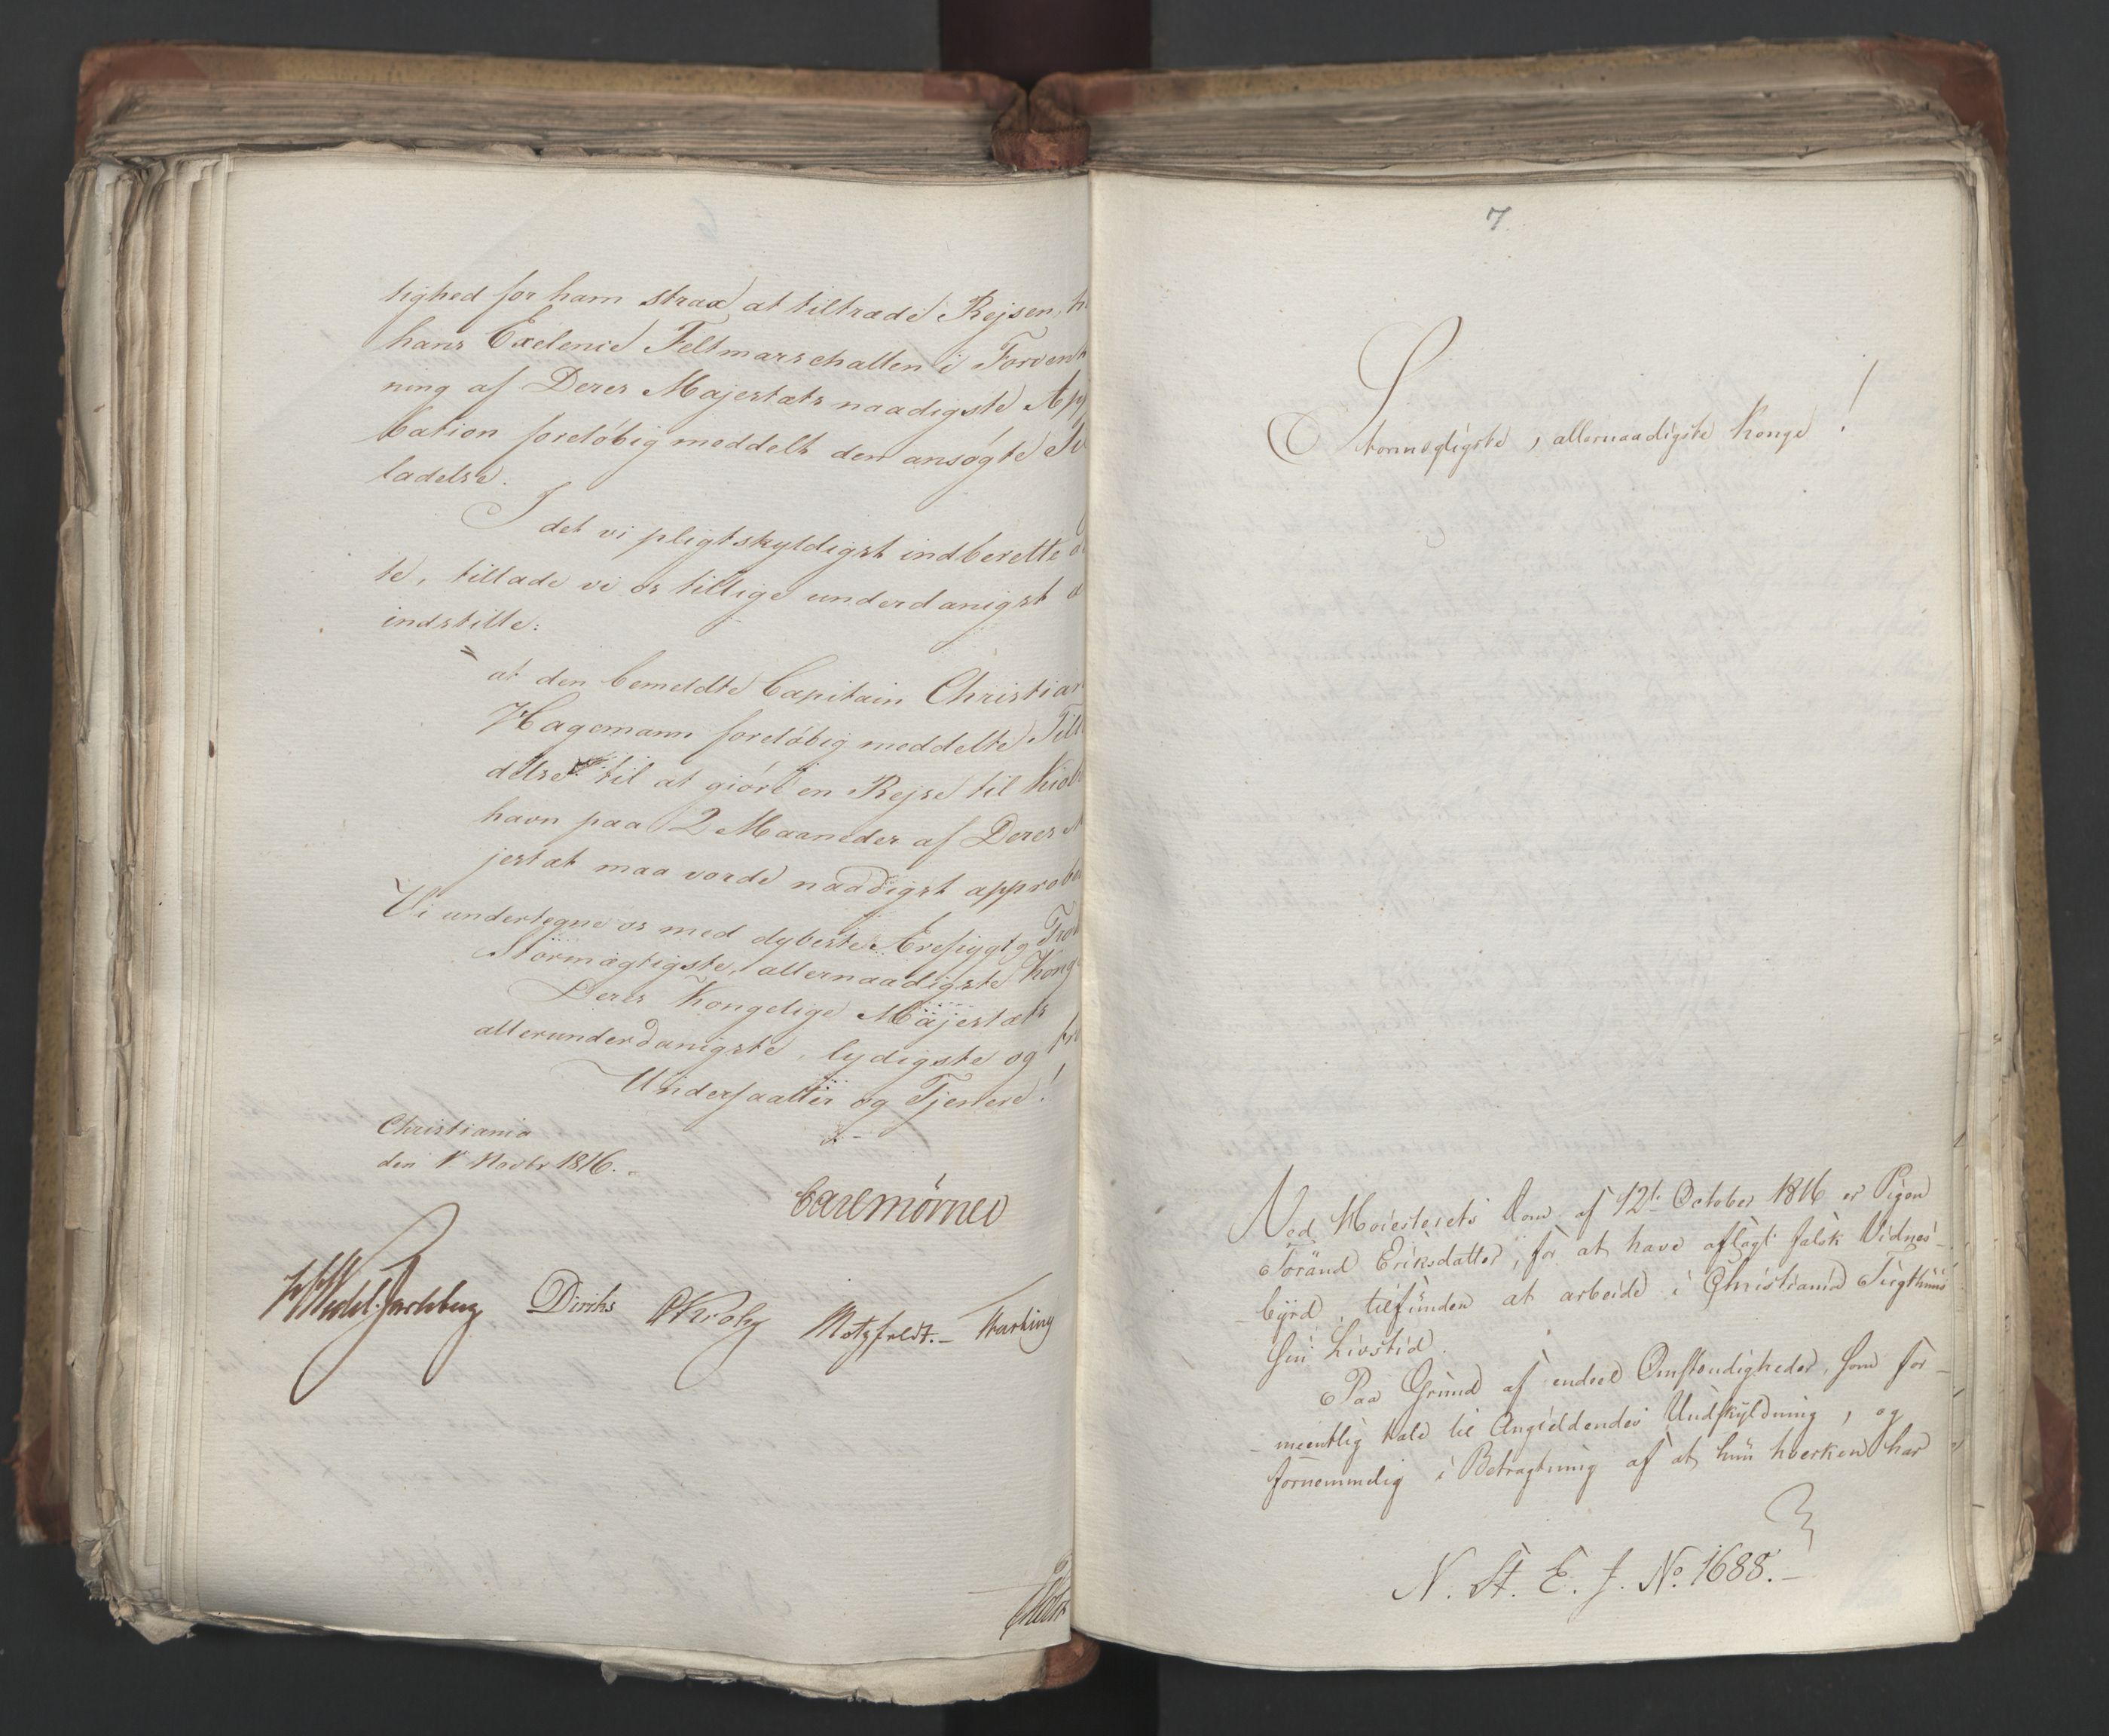 tighed for ham strax at tiltræde Rejsen, h
hans Exelence Feltmarschallen i Forvent
ning af Deres Majestæts naadigste App
bation foreløbig meddelt den ansøgte Til
ladelse.
I det vi pligtskyldigst indberette d
te, tillade vi os tillige underdanigst a
indstille:
at den bemeldte Capitain Christian
Hagemann foreløbig meddelte Till
delse til at giøre en Rejse til Kiøb
havn paa 2 Maaneder af Deres M
jestæt maa vorde naadigst approbe
Vi undertegne os med dybeste Ærefrygt
Stormægtigste, allernaadigste Kong
Deres Kongelige Majestæts
allerunderdanigste, lydigste og
Undersaatter og Tjenere!
Christiania
den 1 Novbr 1816.
Carl Mörner
Wedel Jarlsberg Diriks Krohg Motzfeldt.
7
Stormægtigste, allernaadigste Konge!
Ved Høiesterets Dom af 12te October 1816 er Pigen
Eriksdatter, for at have aflagt falsk Vidnes-
byrd, tilfunden at arbeide i Christiania Tugthuus
sin Livstid.
Paa Grund af endeel Omstændigheder, som for-
meentlig tale til Angieldendes Undskyldning, og
fornemmelig i Betragtning af at hun hverken har
N. St. E. J. No. 1688.